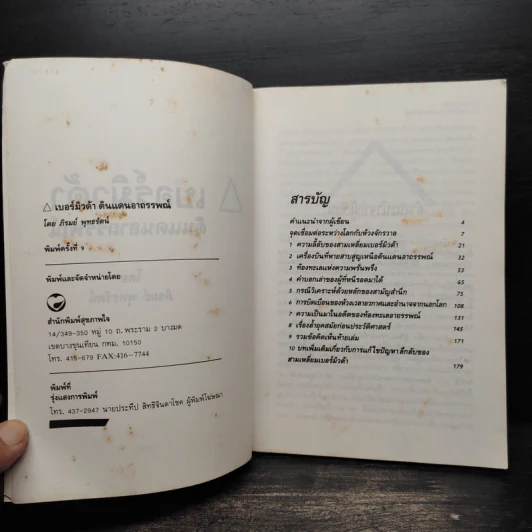 △ เบอร์มิวด้า ดินแดนอาถรรพณ์
โดย ภิรมย์ พุทธรัตน์
พิมพ์ครั้งที่ ๆ
พิมพ์และจัดจำหน่ายโดย
สำนักพิมพ์สุขภาพใจ
14/349-350 หมู่ 10 ถ.พระราม 2 บางมด
เขตบางขุนเทียน กทม. 10150
โทร. 415-6797 FAX:416-7744
พิมพ์ที่
รุ่งแสงการพิมพ์
โทร. 437-2947 นายประทีป สิทธิจินดาโชค ผู้พิมพ์โฆษณา
สารบัญ
คำแนะนำจากผู้เขียน 4
จุดเชื่อมต่อระหว่างโลกกับห้วงจักรวาล 7
1 ความลี้ลับของสามเหลี่ยมเบอร์มิวด้า 21
2 เครื่องบินที่หายสาบสูญเหนือดินแดนอาถรรพณ์ 32
3 ท้องทะเลแห่งความพรั่นพรึง 52
4 คำบอกเล่าของผู้ที่หนีรอดมาได้ 63
5 กรณีวิเคราะห์ด้วยหลักของสามัญสำนึก 75
6 การบิดเบือนของห้วงเวลาอวกาศและอำนาจจากนอกโลก 108
7 ความเป็นมาในอดีตของท้องทะเลอาถรรพณ์ 121
8 เรื่องล้ำยุคสมัยก่อนประวัติศาสตร์ 145
9 รวมข้อคิดเห็นท้ายเล่ม 171
10 บทเพิ่มเติมเกี่ยวกับการแก้ไขปัญหาลึกลับของ
สามเหลี่ยมเบอร์มิวด้า 179